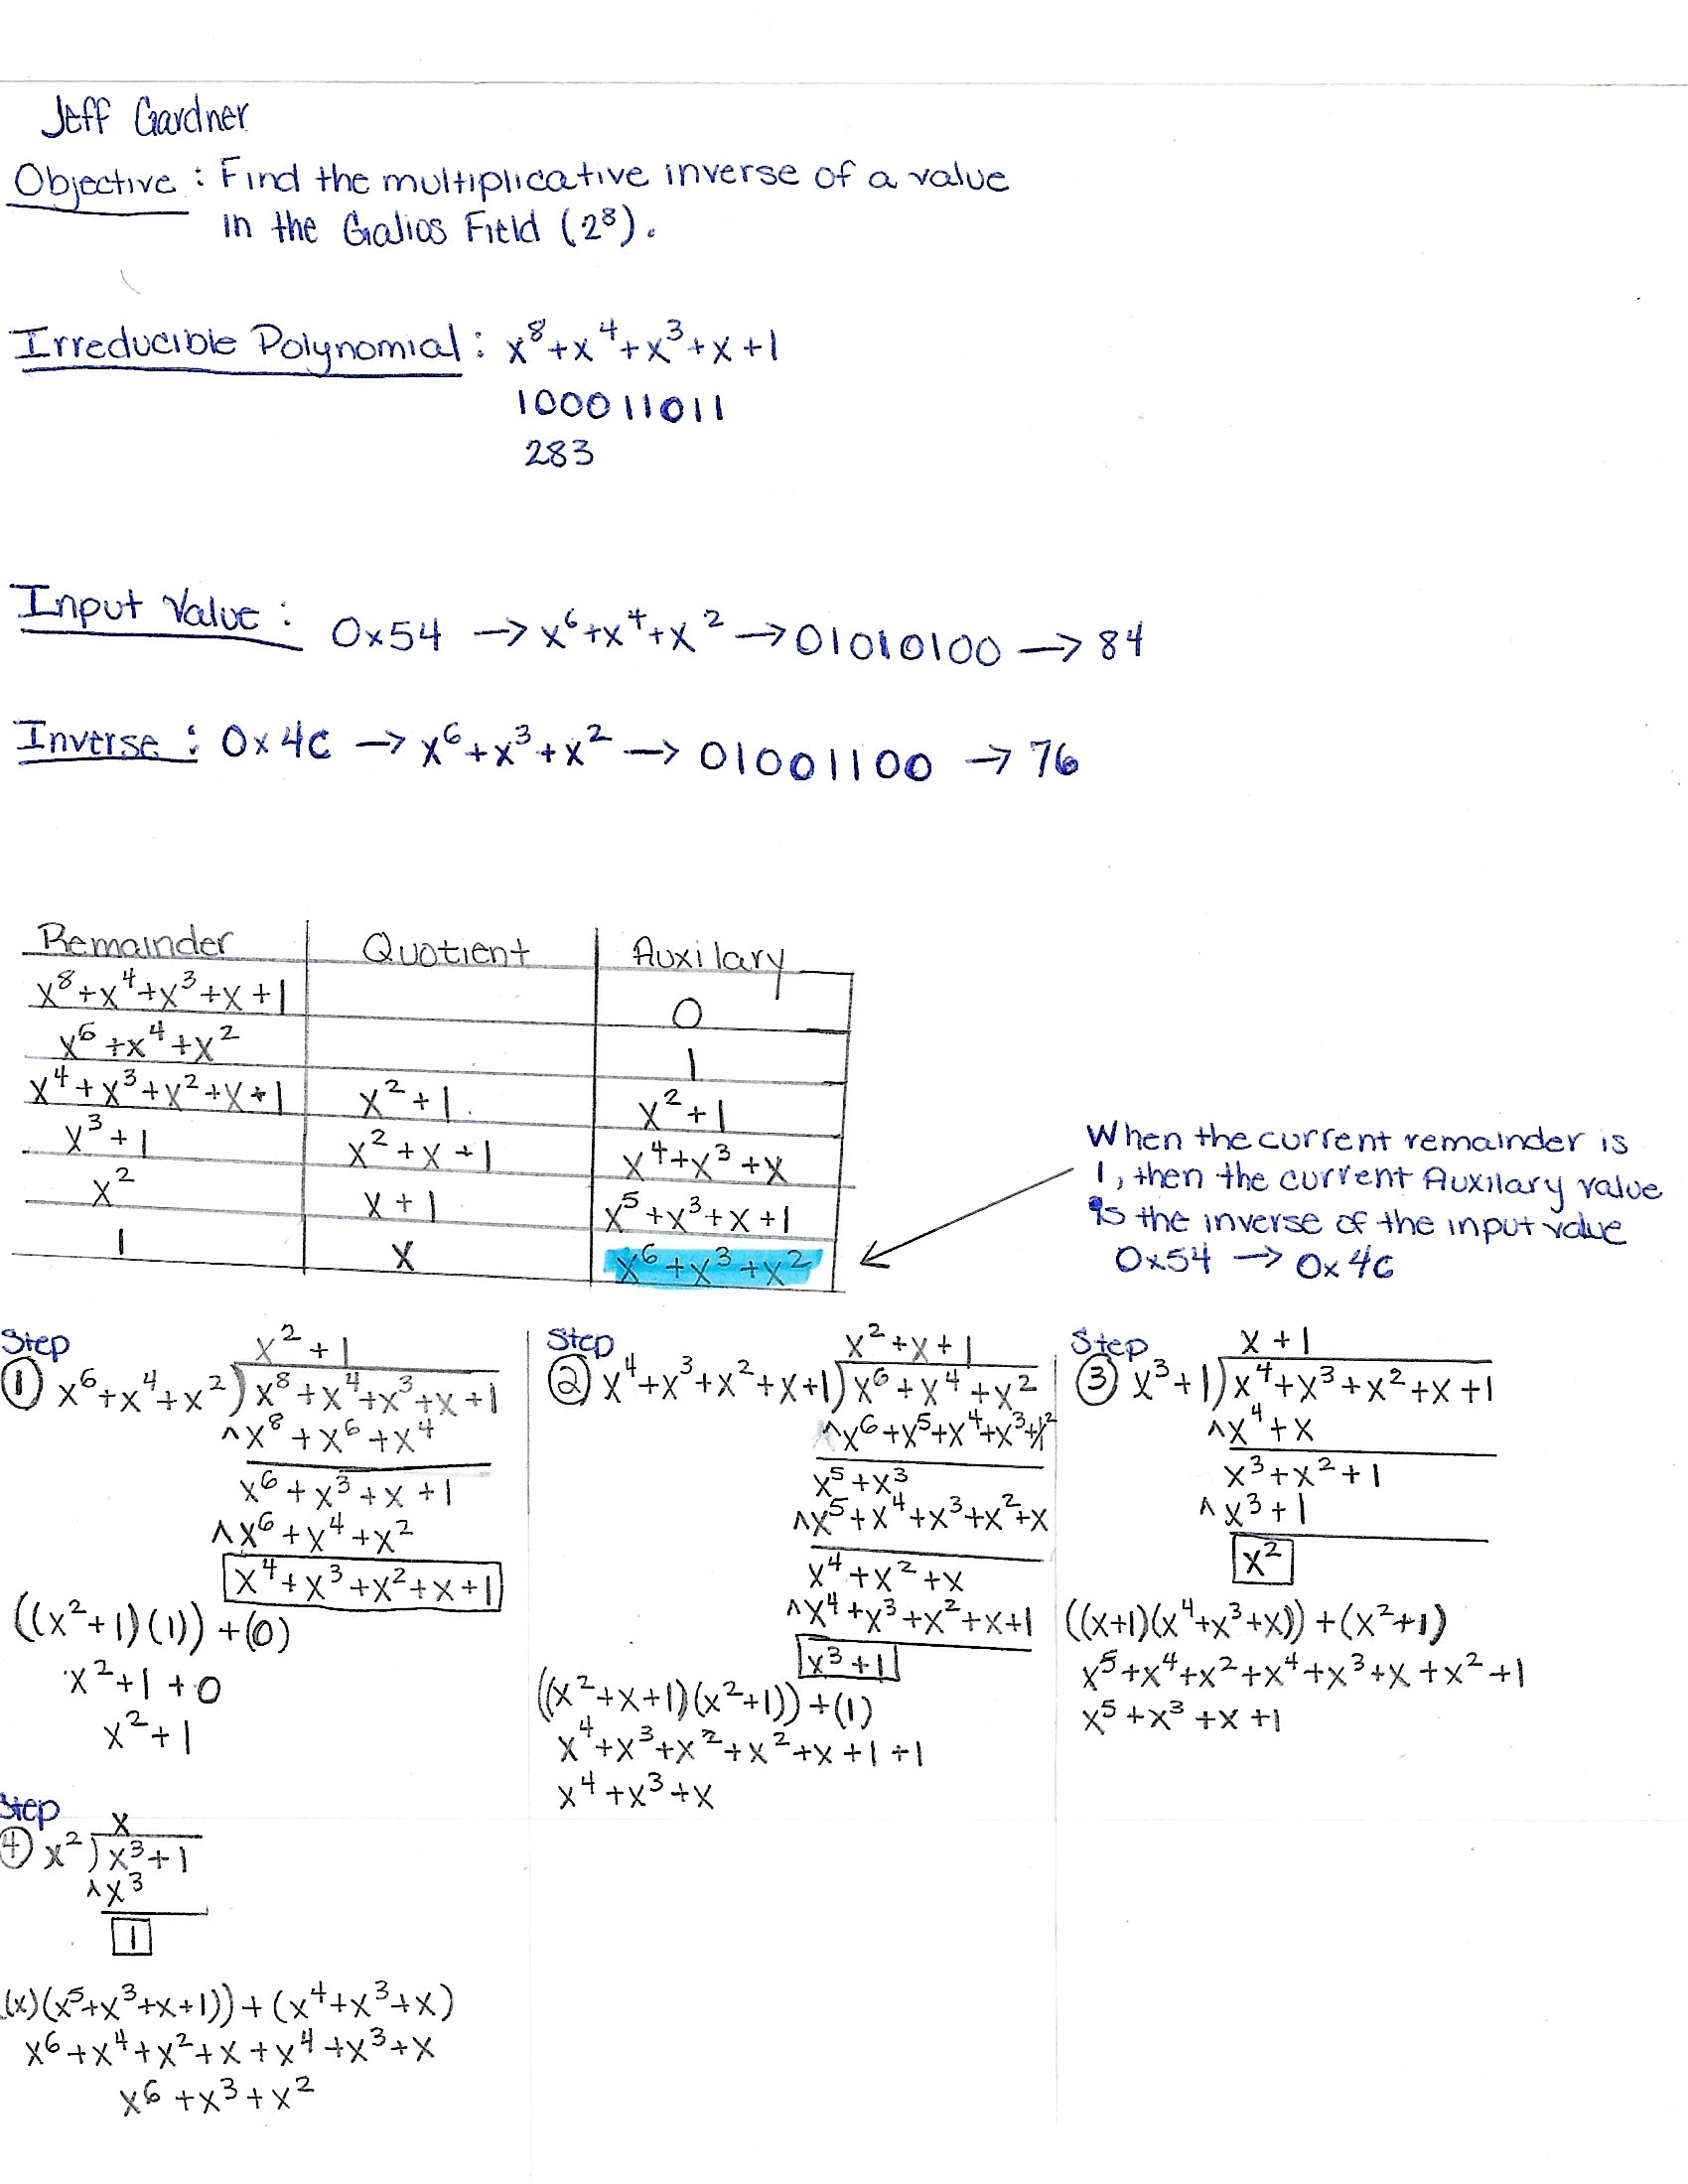 Jeff Gardner
Objective : Find the multiplicative inverse of a value
in the Galios Field (2⁸).
Irreducible Polynomial : x⁸+x⁴+x³+x+1
100011011
283
Input Value : 0x54 → x⁶+x⁴+x² → 01010100 → 84
Inverse : 0x4C → x⁶+x³+x² → 01001100 → 76
Remainder Quotient Auxilary
x⁸+x⁴+x³+x+1 0
x⁶+x⁴+x² 1
x⁴+x³+x²+x+1 x²+1 x²+1
x³+1 x²+x+1 x⁴+x³+x
x² x+1 x⁵+x³+x+1
1 x x⁶+x³+x²
When the current remainder is
1, then the current Auxilary value
is the inverse of the input value
0x54 → 0x4C
Step
① x²+1
x⁶+x⁴+x² ) x⁸+x⁴+x³+x+1
^x⁸+x⁶+x⁴
x⁶+x³+x+1
^x⁶+x⁴+x²
x⁴+x³+x²+x+1
((x²+1)(1))+(0)
x²+1+0
x²+1
Step
② x²+x+1
x⁴+x³+x²+x+1 ) x⁶+x⁴+x²
^x⁶+x⁵+x⁴+x³+x²
x⁵+x³
^x⁵+x⁴+x³+x²+x
x⁴+x²+x
^x⁴+x³+x²+x+1
x³+1
((x²+x+1)(x²+1))+(1)
x⁴+x³+x²+x²+x+1+1
x⁴+x³+x
Step
③ x+1
x³+1 ) x⁴+x³+x²+x+1
^x⁴+x
x³+x²+1
^x³+1
x²
((x+1)(x⁴+x³+x))+(x²+1)
x⁵+x⁴+x²+x⁴+x³+x+x²+1
x⁵+x³+x+1
Step
④ x
x² ) x³+1
^x³
1
(x)(x⁵+x³+x+1))+(x⁴+x³+x)
x⁶+x⁴+x²+x+x⁴+x³+x
x⁶+x³+x²